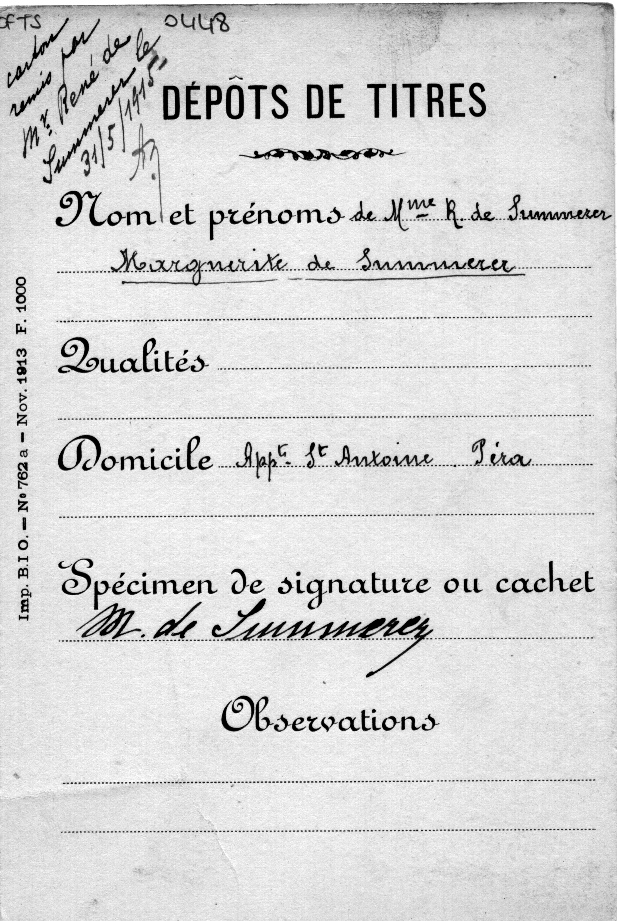 OFTS 0448
carton
remis par
Mr. René de
Summerer le
31/5/1915
DÉPÔTS DE TITRES
Nom et prénoms de Mme R. de Summerer
Marguerite de Summerer
Qualités
Domicile Appt. St Antoine. Péra
Spécimen de signature ou cachet
M. de Summerer
Observations
Imp. B.I O. — No 762 a — Nov. 1913 F. 1000